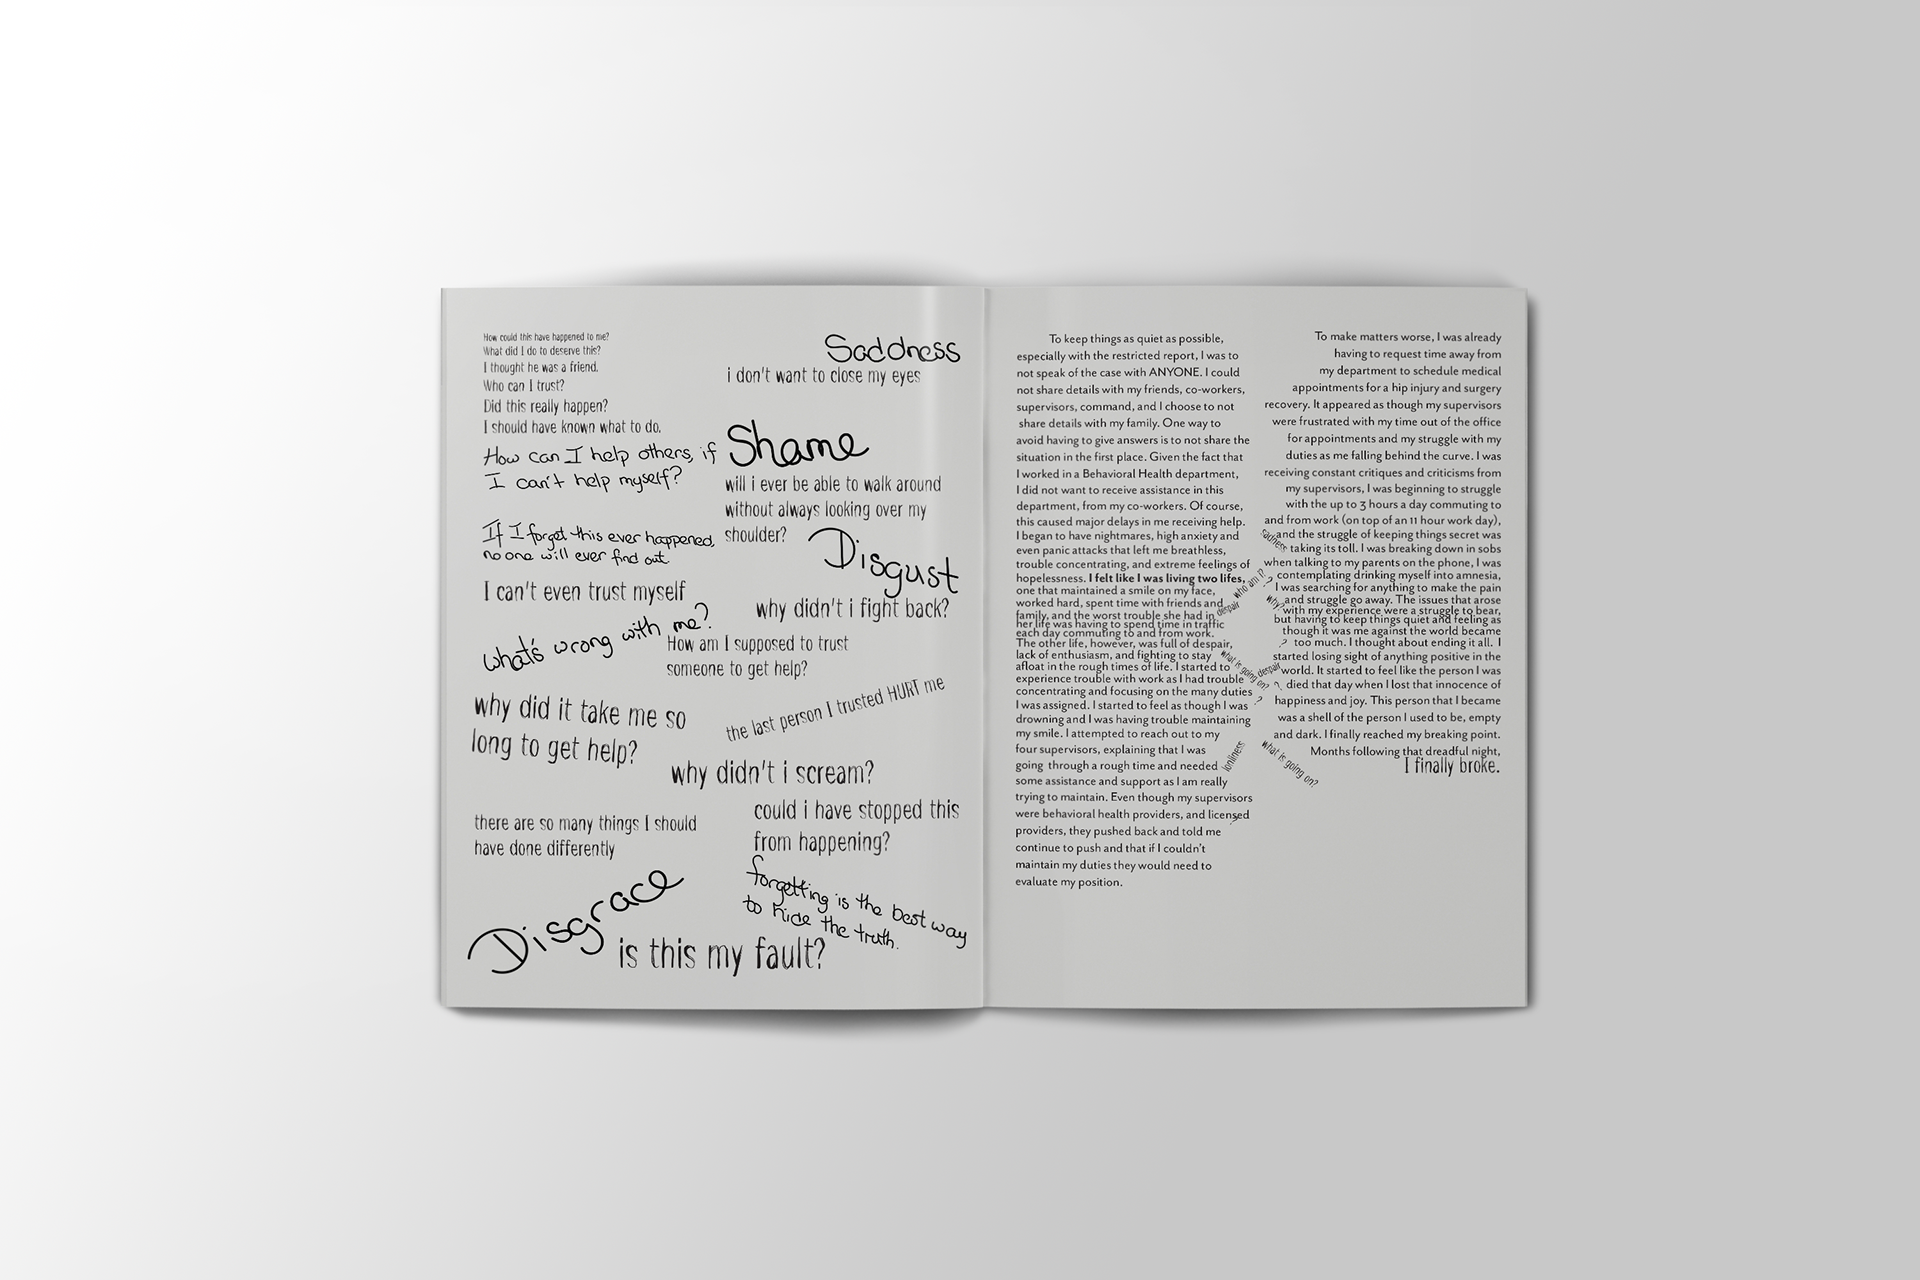 How could this have happened to me?
What did I do to deserve this?
I thought he was a friend.
Who can I trust?
Did this really happen?
I should have known what to do.
How can I help others, if
I can't help myself?
If I forget this ever happened,
no one will ever find out
I can't even trust myself
what's wrong with me?
why did it take me so
long to get help?
there are so many things I should
have done differently
Disgrace
is this my fault?
Saddness
i don't want to close my eyes
Shame
will i ever be able to walk around
without always looking over my
shoulder?
Disgust
why didn't i fight back?
How am I supposed to trust
someone to get help?
the last person I trusted HURT me
why didn't i scream?
could i have stopped this
from happening?
forgetting is the best way
to hide the truth.
To keep things as quiet as possible,
especially with the restricted report, I was to
not speak of the case with ANYONE. I could
not share details with my friends, co-workers,
supervisors, command, and I choose to not
share details with my family. One way to
avoid having to give answers is to not share the
situation in the first place. Given the fact that
I worked in a Behavioral Health department,
I did not want to receive assistance in this
department, from my co-workers. Of course,
this caused major delays in me receiving help.
I began to have nightmares, high anxiety and
even panic attacks that left me breathless,
trouble concentrating, and extreme feelings of
hopelessness. I felt like I was living two lives,
one that maintained a smile on my face,
worked hard, spent time with friends and
family, and the worst trouble she had in
her life was having to spend time in traffic
each day commuting to and from work.
The other life, however, was full of despair,
lack of enthusiasm, and fighting to stay
afloat in the rough times of life. I started to
experience trouble with work as I had trouble
concentrating and focusing on the many duties
I was assigned. I started to feel as though I was
drowning and I was having trouble maintaining
my smile. I attempted to reach out to my
four supervisors, explaining that I was
going through a rough time and needed
some assistance and support as I am really
trying to maintain. Even though my supervisors
were behavioral health providers, and licensed
providers, they pushed back and told me
continue to push and that if I couldn't
maintain my duties they would need to
evaluate my position.
sadness
who am I?
?
despair
why?
?
what is going on?
despair
?
?
lonliness
what is going on?
To make matters worse, I was already
having to request time away from
my department to schedule medical
appointments for a hip injury and surgery
recovery. It appeared as though my supervisors
were frustrated with my time out of the office
for appointments and my struggle with my
duties as me falling behind the curve. I was
receiving constant critiques and criticisms from
my supervisors, I was beginning to struggle
with the up to 3 hours a day commuting to
and from work (on top of an 11 hour work day),
and the struggle of keeping things secret was
taking its toll. I was breaking down in sobs
when talking to my parents on the phone, I was
contemplating drinking myself into amnesia,
I was searching for anything to make the pain
and struggle go away. The issues that arose
with my experience were a struggle to bear,
but having to keep things quiet and feeling as
though it was me against the world became
too much. I thought about ending it all. I
started losing sight of anything positive in the
world. It started to feel like the person I was
died that day when I lost that innocence of
happiness and joy. This person that I became
was a shell of the person I used to be, empty
and dark. I finally reached my breaking point.
Months following that dreadful night,
I finally broke.